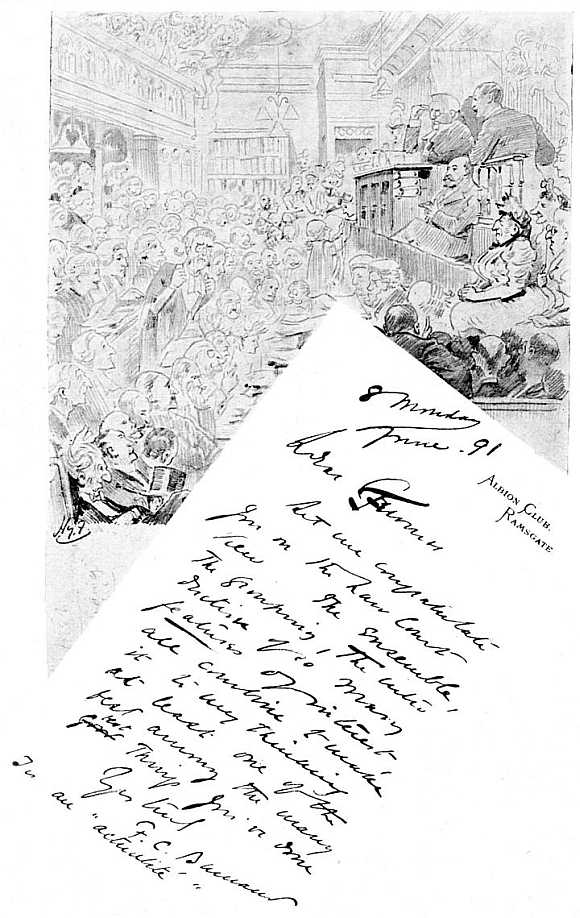 8 Monday
June .91
ALBION CLUB.
RAMSGATE
Dear Furniss
Let me congratulate
you on the Law Court
view The ensemble,
The grouping, The intro
duction of so many
features of interest
all combine to make
it to my thinking
at least one of the
best among the many
Things you've done
Yrs truly
F. C. Burnand
In
an "actualité"